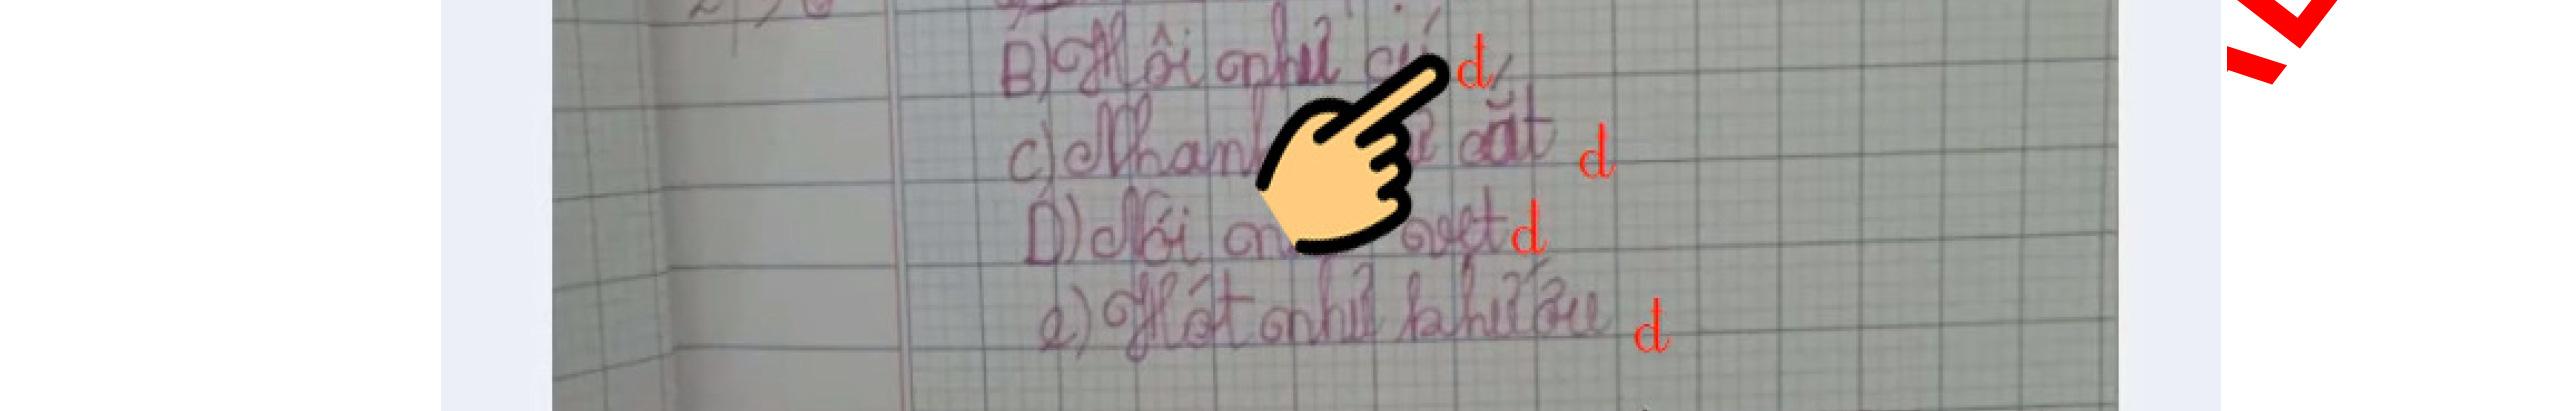 B) Hôi như cú d
C) Nhanh cắt d
D) Nói vẹt d
e) Hót như khướu d